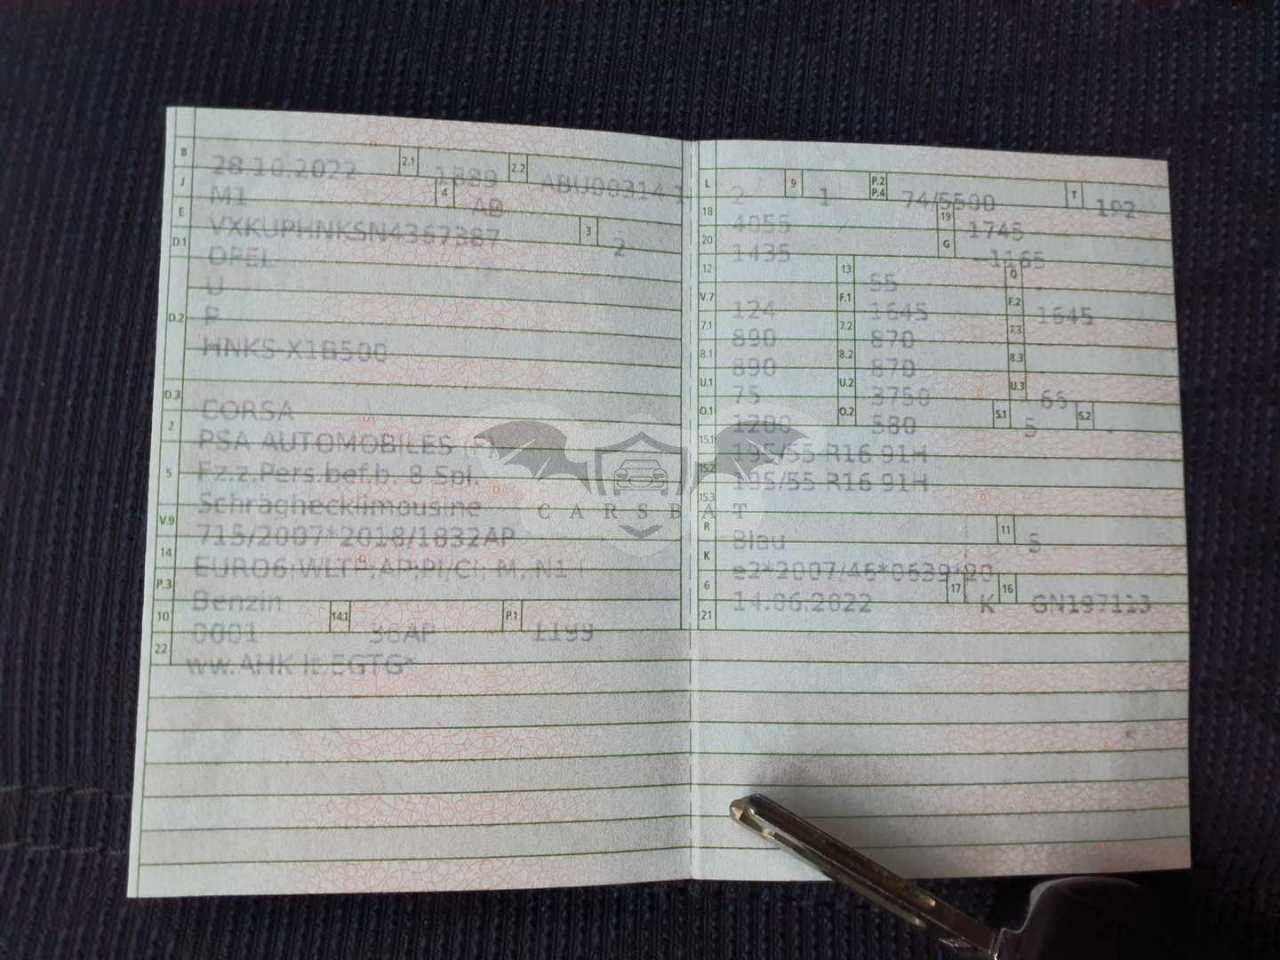 B 28.10.2022 2.1 1889 2.2 ABU00314 1
J M1 4 AB
E VXKUPHNKSN4367387 3 2
D.1 OPEL
U
D.2 P
HNKS-X1B500
D.3 CORSA
2 PSA AUTOMOBILES (F)
5 Fz.z.Pers.bef.b. 8 Spl.
Schräghecklimousine
V.9 715/2007*2018/1832AP
14 EURO6;WLTP;AP;PI/CI; M, N1 I
P.3 Benzin
10 0001 14.1 36AP P.1 1199
22 ww.AHK lt.EGTG*
L 2 9 1 P.2 P.4 74/5500 T 192
18 4055 19 1745
20 1435 G 1165
12 13 55 Q
V.7 124 F.1 1645 F.2 1645
7.1 890 7.2 870 7.3
8.1 890 8.2 870 8.3
U.1 75 U.2 3750 U.3 65
O.1 1200 O.2 580 S.1 5 S.2 -
15.1 195/55 R16 91H
15.2 195/55 R16 91H
15.3
R Blau 11 5
K e2*2007/46*0639*20
6 14.06.2022 17 K 16 GN197113
21
CARSBAT